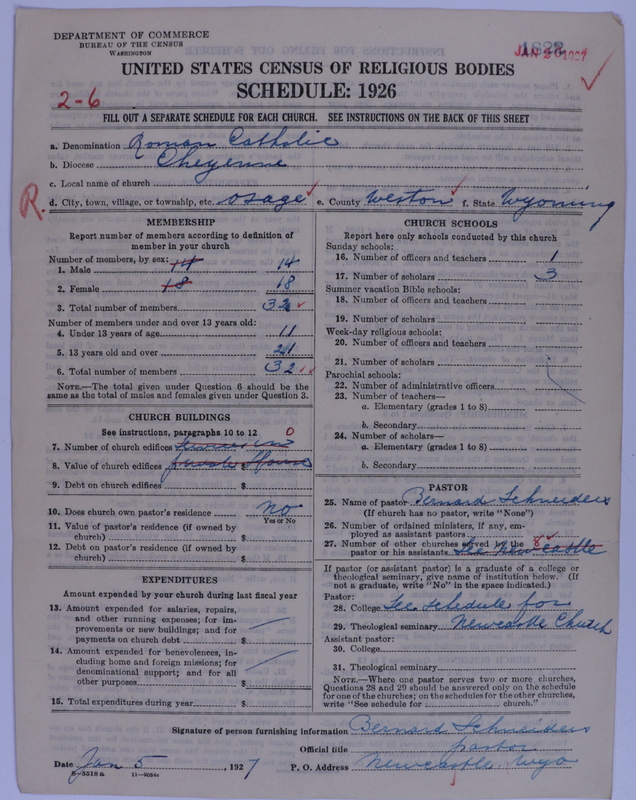 DEPARTMENT OF COMMERCE
BUREAU OF THE CENSUS
WASHINGTON
JAN 26 1927
UNITED STATES CENSUS OF RELIGIOUS BODIES
SCHEDULE: 1926
2-6
FILL OUT A SEPARATE SCHEDULE FOR EACH CHURCH. SEE INSTRUCTIONS ON THE BACK OF THIS SHEET
a. Denomination Roman Catholic
b. Diocese Cheyenne
c. Local name of church
R. d. City, town, village, or township, etc. Osage e. County Weston f. State Wyoming
MEMBERSHIP
Report number of members according to definition of
member in your church
Number of members, by sex:
1. Male 14 14
2. Female 18 18
3. Total number of members 32
Number of members under and over 13 years old:
4. Under 13 years of age 11
5. 13 years old and over 21
6. Total number of members 32
NOTE.—The total given under Question 6 should be
same as the total of males and females given under Question 3.
CHURCH BUILDINGS
See instructions, paragraphs 10 to 12 0
7. Number of church edifices Services in
8. Value of church edifices private $ House
9. Debt on church edifices $
10. Does church own pastor's residence no
Yes or No
11. Value of pastor's residence (if owned by
church) $
12. Debt on pastor's residence (if owned by
church) $
EXPENDITURES
Amount expended by your church during last fiscal year
13. Amount expended for salaries, repairs,
and other running expenses; for im-
provements or new buildings; and for
payments on church debt $
14. Amount expended for benevolences, in-
cluding home and foreign missions; for
denominational support; and for all
other purposes $
15. Total expenditures during year $
CHURCH SCHOOLS
Report here only schools conducted by this church
Sunday schools:
16. Number of officers and teachers 1
17. Number of scholars 3
Summer vacation Bible schools:
18. Number of officers and teachers
19. Number of scholars
Week-day religious schools:
20. Number of officers and teachers
21. Number of scholars
Parochial schools:
22. Number of administrative officers
23. Number of teachers—
a. Elementary (grades 1 to 8)
b. Secondary
24. Number of scholars—
a. Elementary (grades 1 to 8)
b. Secondary
PASTOR
25. Name of pastor Bernard Schneiders
(If church has no pastor, write "None")
26. Number of ordained ministers, if any, em-
ployed as assistant pastors
27. Number of other churches served by the 8
pastor or his assistants See Newcastle
If pastor (or assistant pastor) is a graduate of a college or
theological seminary, give name of institution below. (If
not a graduate, write "No" in the space indicated.)
Pastor:
28. College See schedule for
29. Theological seminary Newcastle Church
Assistant pastor:
30. College
31. Theological seminary
NOTE.—Where one pastor serves two or more churches,
Questions 28 and 29 should be answered only on the schedule
for one of the churches; on the schedules for the other churches,
write "See schedule for church."
Signature of person furnishing information Bernard Schneiders
Official title pastor
Date Jan 5, 1927 P. O. Address Newcastle Wyo
8—5518 a